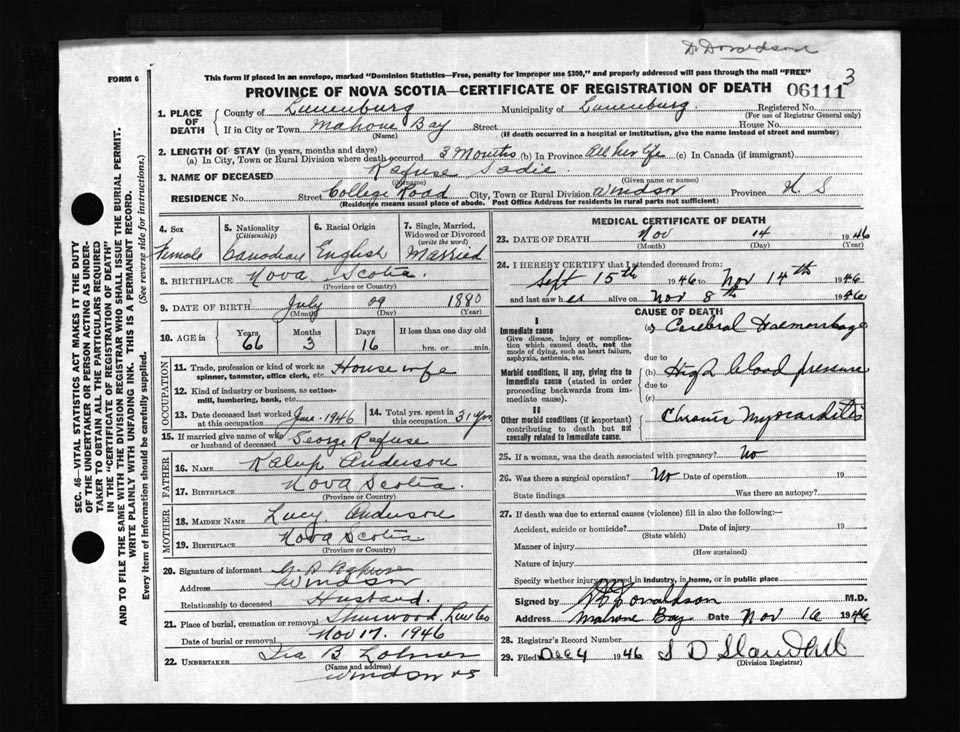 Dr Donaldson
3
FORM 6
This form if placed in an envelope, marked "Dominion Statistics—Free, penalty for improper use $300," and properly addressed will pass through the mail "FREE"
PROVINCE OF NOVA SCOTIA—CERTIFICATE OF REGISTRATION OF DEATH 06111
SEC. 46—VITAL STATISTICS ACT MAKES IT THE DUTY
OF THE UNDERTAKER OR PERSON ACTING AS UNDER-
TAKER TO OBTAIN ALL THE PARTICULARS REQUIRED
IN THE "CERTIFICATE OF REGISTRATION OF DEATH"
AND TO FILE THE SAME WITH THE DIVISION REGISTRAR WHO SHALL ISSUE THE BURIAL PERMIT.
WRITE PLAINLY WITH UNFADING INK. THIS IS A PERMANENT RECORD.
Every item of Information should be carefully supplied. (See reverse side for instructions.)
1. PLACE OF DEATH
County of Lunenburg Municipality of Lunenburg. Registered No.
(For use of Registrar General only)
If in City or Town Mahone Bay Street House No.
(Name) (If death occurred in a hospital or institution, give the name instead of street and number)
2. LENGTH OF STAY (in years, months and days)
(a) In City, Town or Rural Division where death occurred 3 Months (b) In Province All her life (c) In Canada (if immigrant)
3. NAME OF DECEASED Rafuse Sadie
(Surname) (Given name or names)
RESIDENCE No. Street College Road City, Town or Rural Division Windsor Province N. S
(Residence means usual place of abode. Post Office Address for residents in rural parts not sufficient)
4. Sex Female
5. Nationality (Citizenship) Canadian
6. Racial Origin English
7. Single, Married, Widowed or Divorced (write the word) Married
8. BIRTHPLACE Nova Scotia
(Province or Country)
9. DATE OF BIRTH July 09 1880
(Month) (Day) (Year)
10. AGE in Years 66 Months 3 Days 16 If less than one day old hrs. or min.
OCCUPATION
11. Trade, profession or kind of work as spinner, teamster, office clerk, etc. House wife
12. Kind of industry or business, as cotton-mill, lumbering, bank, etc.
13. Date deceased last worked at this occupation June 1946
14. Total yrs. spent in this occupation 31 yrs
15. If married give name of wife or husband of deceased George Rafuse
FATHER
16. NAME Anderson
17. BIRTHPLACE Nova Scotia
(Province or Country)
MOTHER
18. MAIDEN NAME Lucy Anderson
19. BIRTHPLACE Nova Scotia
(Province or Country)
20. Signature of informant Rafuse
Address Windsor
Relationship to deceased Husband.
21. Place of burial, cremation or removal Sherwood,
Date of burial or removal Nov 17. 1946
22. UNDERTAKER Ira B
(Name and address)
Windsor NS
MEDICAL CERTIFICATE OF DEATH
23. DATE OF DEATH Nov 14 1946
(Month) (Day) (Year)
24. I HEREBY CERTIFY that I attended deceased from:
Sept 15th 1946 to Nov 14th 1946
and last saw her alive on Nov 8th 1946
CAUSE OF DEATH
I
Immediate cause
Give disease, injury or complication which caused death, not the mode of dying, such as heart failure, asphyxia, asthenia, etc.
(a) Cerebral Haemorrhage
due to
Morbid conditions, if any, giving rise to immediate cause (stated in order proceeding backwards from immediate cause).
(b) High blood pressure
due to
(c)
II
Other morbid conditions (if important) contributing to death but not causally related to immediate cause.
Chronic Myocarditis
25. If a woman, was the death associated with pregnancy? No
26. Was there a surgical operation? No Date of operation 19
State findings Was there an autopsy?
27. If death was due to external causes (violence) fill in also the following:—
Accident, suicide or homicide? Date of injury 19
(State which)
Manner of injury
(How sustained)
Nature of injury
Specify whether injury occurred in industry, in home, or in public place
Signed by Donaldson M.D.
Address Mahone Bay Date Nov 16 1946
28. Registrar's Record Number
29. Filed Dec 4 1946 S D
(Division Registrar)